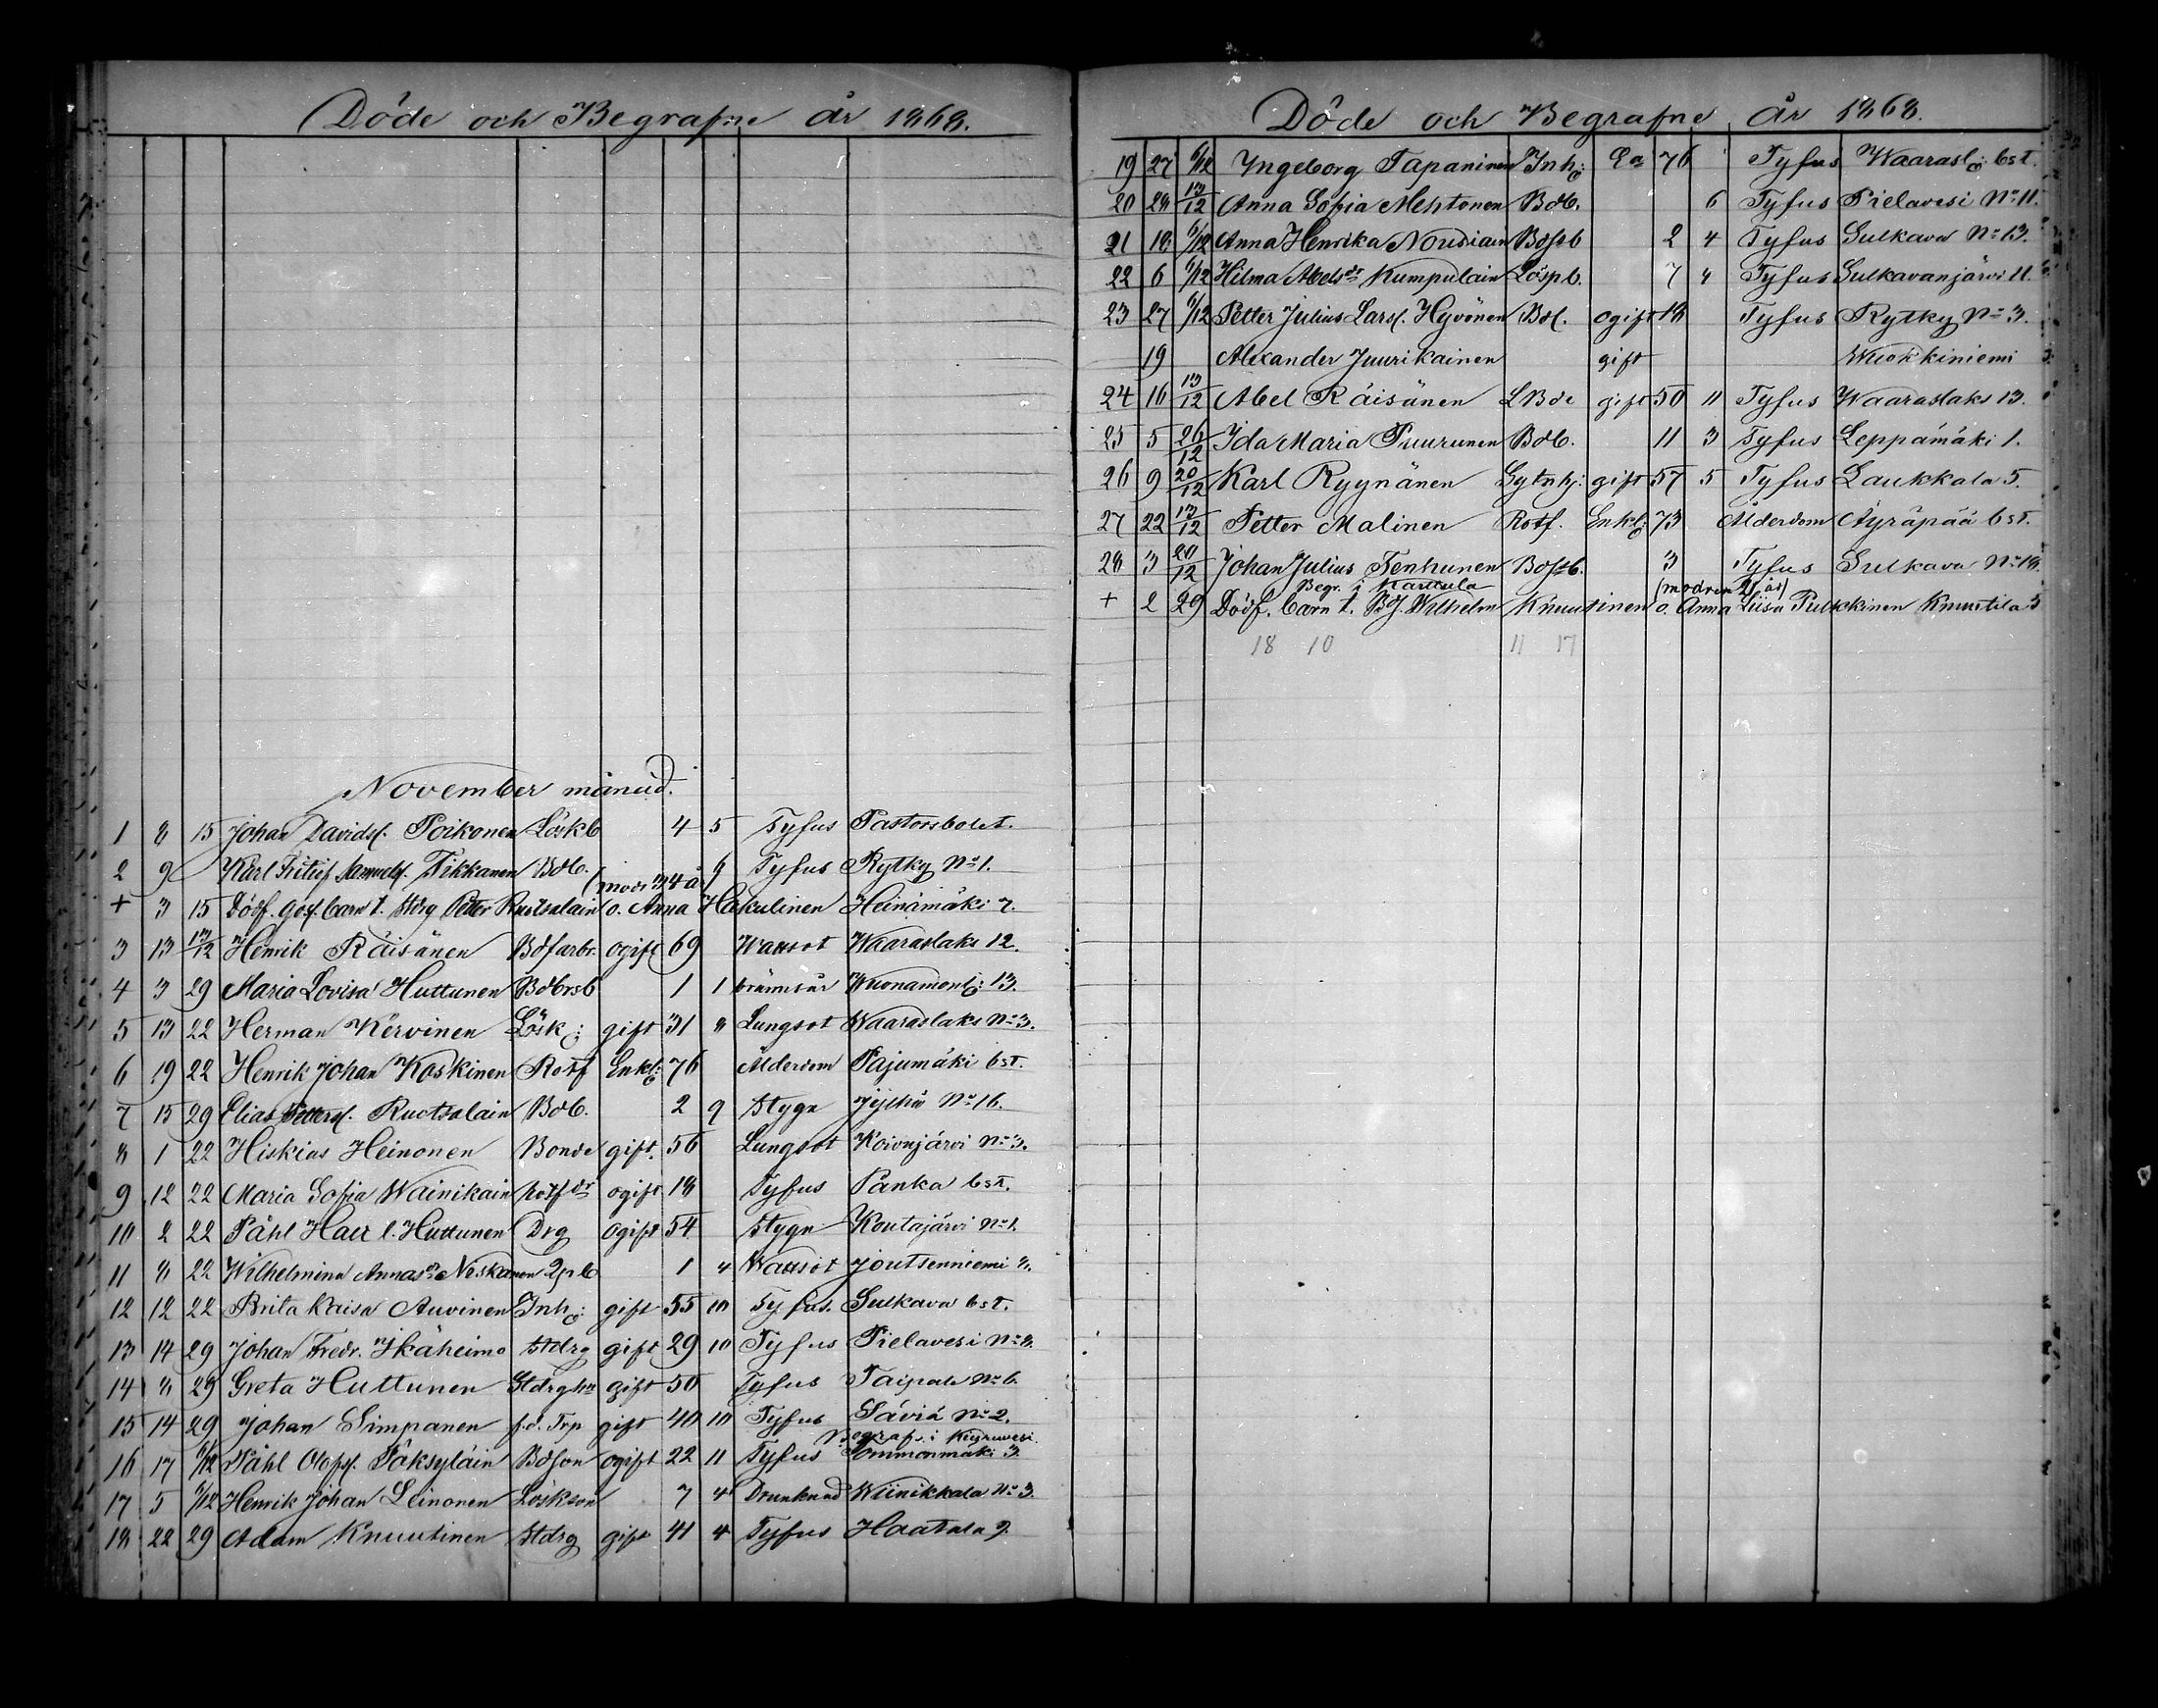 Döde och Begrafne år 1868.
November månad.
1 8 15 Johan Davidsf. Poikonen Löskb 4 5 Tyfus Pastorsbolet.
2 9 Karl Fritiof Samuelsf. Tikkanen Bdb. 9 Tyfus Rytky No 1.
(modr 34 år)
+ 3 15 Dödf. gossebarn t. Stdrg Petter Ruotsalain o. Anna Hakulinen Heinämäki 7.
3 13 13/12 Henrik Räisänen Bdfarbr. ogift 69 Wattsot Waaraslaks 12.
4 3 29 Maria Lovisa Huttunen Bdbrsb 1 1 brännsår Wuonamonl: 13.
5 13 22 Herman Kärvinen Lösk: gift 31 8 Lungsot Waaraslaks No 3.
6 19 22 Henrik Johan Koskinen Rotf Enkl: 76 Ålderdom Pajumäki bst.
7 15 29 Elias Pettersf. Ruotsalain Bdb. 2 9 Stygn Jylhä No 16.
8 1 22 Hiskias Heinonen Bonde gift. 56 Lungsot Koivujärvi No 3.
9 12 22 Maria Sofia Wainikain rotfdr ogift 18 Tyfus Panka bst.
10 2 22 Påhl Huttunen Drg ogift 54 Stygn Koutajärvi No 1.
11 8 22 Wilhelmina Annasdr Niskanen Lpb 1 4 Wattsot Joutsenniemi 8.
12 12 22 Brita Kaisa Auvinen Inh: gift 55 10 Tyfus. Sulkava bst.
13 14 29 Johan Fredr. Ikäheimo Stdrg gift 29 10 Tyfus Pielavesi No 8.
14 8 29 Greta Huttunen Stdrghu gift 50 Tyfus Taipale No 6.
15 14 29 Johan Simpanen f.d. Trp gift 40 10 Tyfus Säviä No 2.
Begraf. i Keyruvesi.
16 17 6/12 Påhl Olofsf. Säksyläin Bdson ogift 22 11 Tyfus Tommonmäki 3.
17 5 6/12 Henrik Johan Leinonen Löskson 7 4 Drunknad Wiinikkala No 3.
18 22 29 Adam Knuutinen Stdrg gift 41 4 Tyfus Haatala 9.
Döde och Begrafne År 1868.
19 27 6/12 Yngeborg Tapaninen Inh: Ea 76 Tyfus Waarasl: bst.
20 28 13/12 Anna Sofia Mehtonen Bdb. 6 Tyfus Pielavesi No 11.
21 18 6/12 Anna Henrika Nousiain Bdsb 2 4 Tyfus Sulkava No 13.
22 6 6/12 Hilma Abelsdr Kumpulain Löspb. 7 4 Tyfus Sulkavanjärvi 11.
23 27 6/12 Petter Julius Larsf. Hyvönen Bds. ogift 18 Tyfus Rytky No 3.
19 Alexander Juurikainen gift Wuokkiniemi 3.
24 16 13/12 Abel Räisänen LBde gift 50 11 Tyfus Waaraslaks 13.
25 5 26/12 Ida Maria Puurunen Bdb. 11 3 Tyfus Leppämäki 1.
26 9 20/12 Karl Ryynänen Sytnhj: gift 57 5 Tyfus Laukkala 5.
27 22 13/12 Petter Malinen Rotf. Enkl: 73 Ålderdom Äyräpää bst.
28 3 20/12 Johan Julius Tenhunen Bdsb. 3 Tyfus Sulkava No 18.
Begr. i Karttula (modren år)
+ 2 29 Dödf. barn t. Bds. Wilhelm Knuutinen o. Anna Liisa Pulkkinen Knuutila 5
18 10 11 17